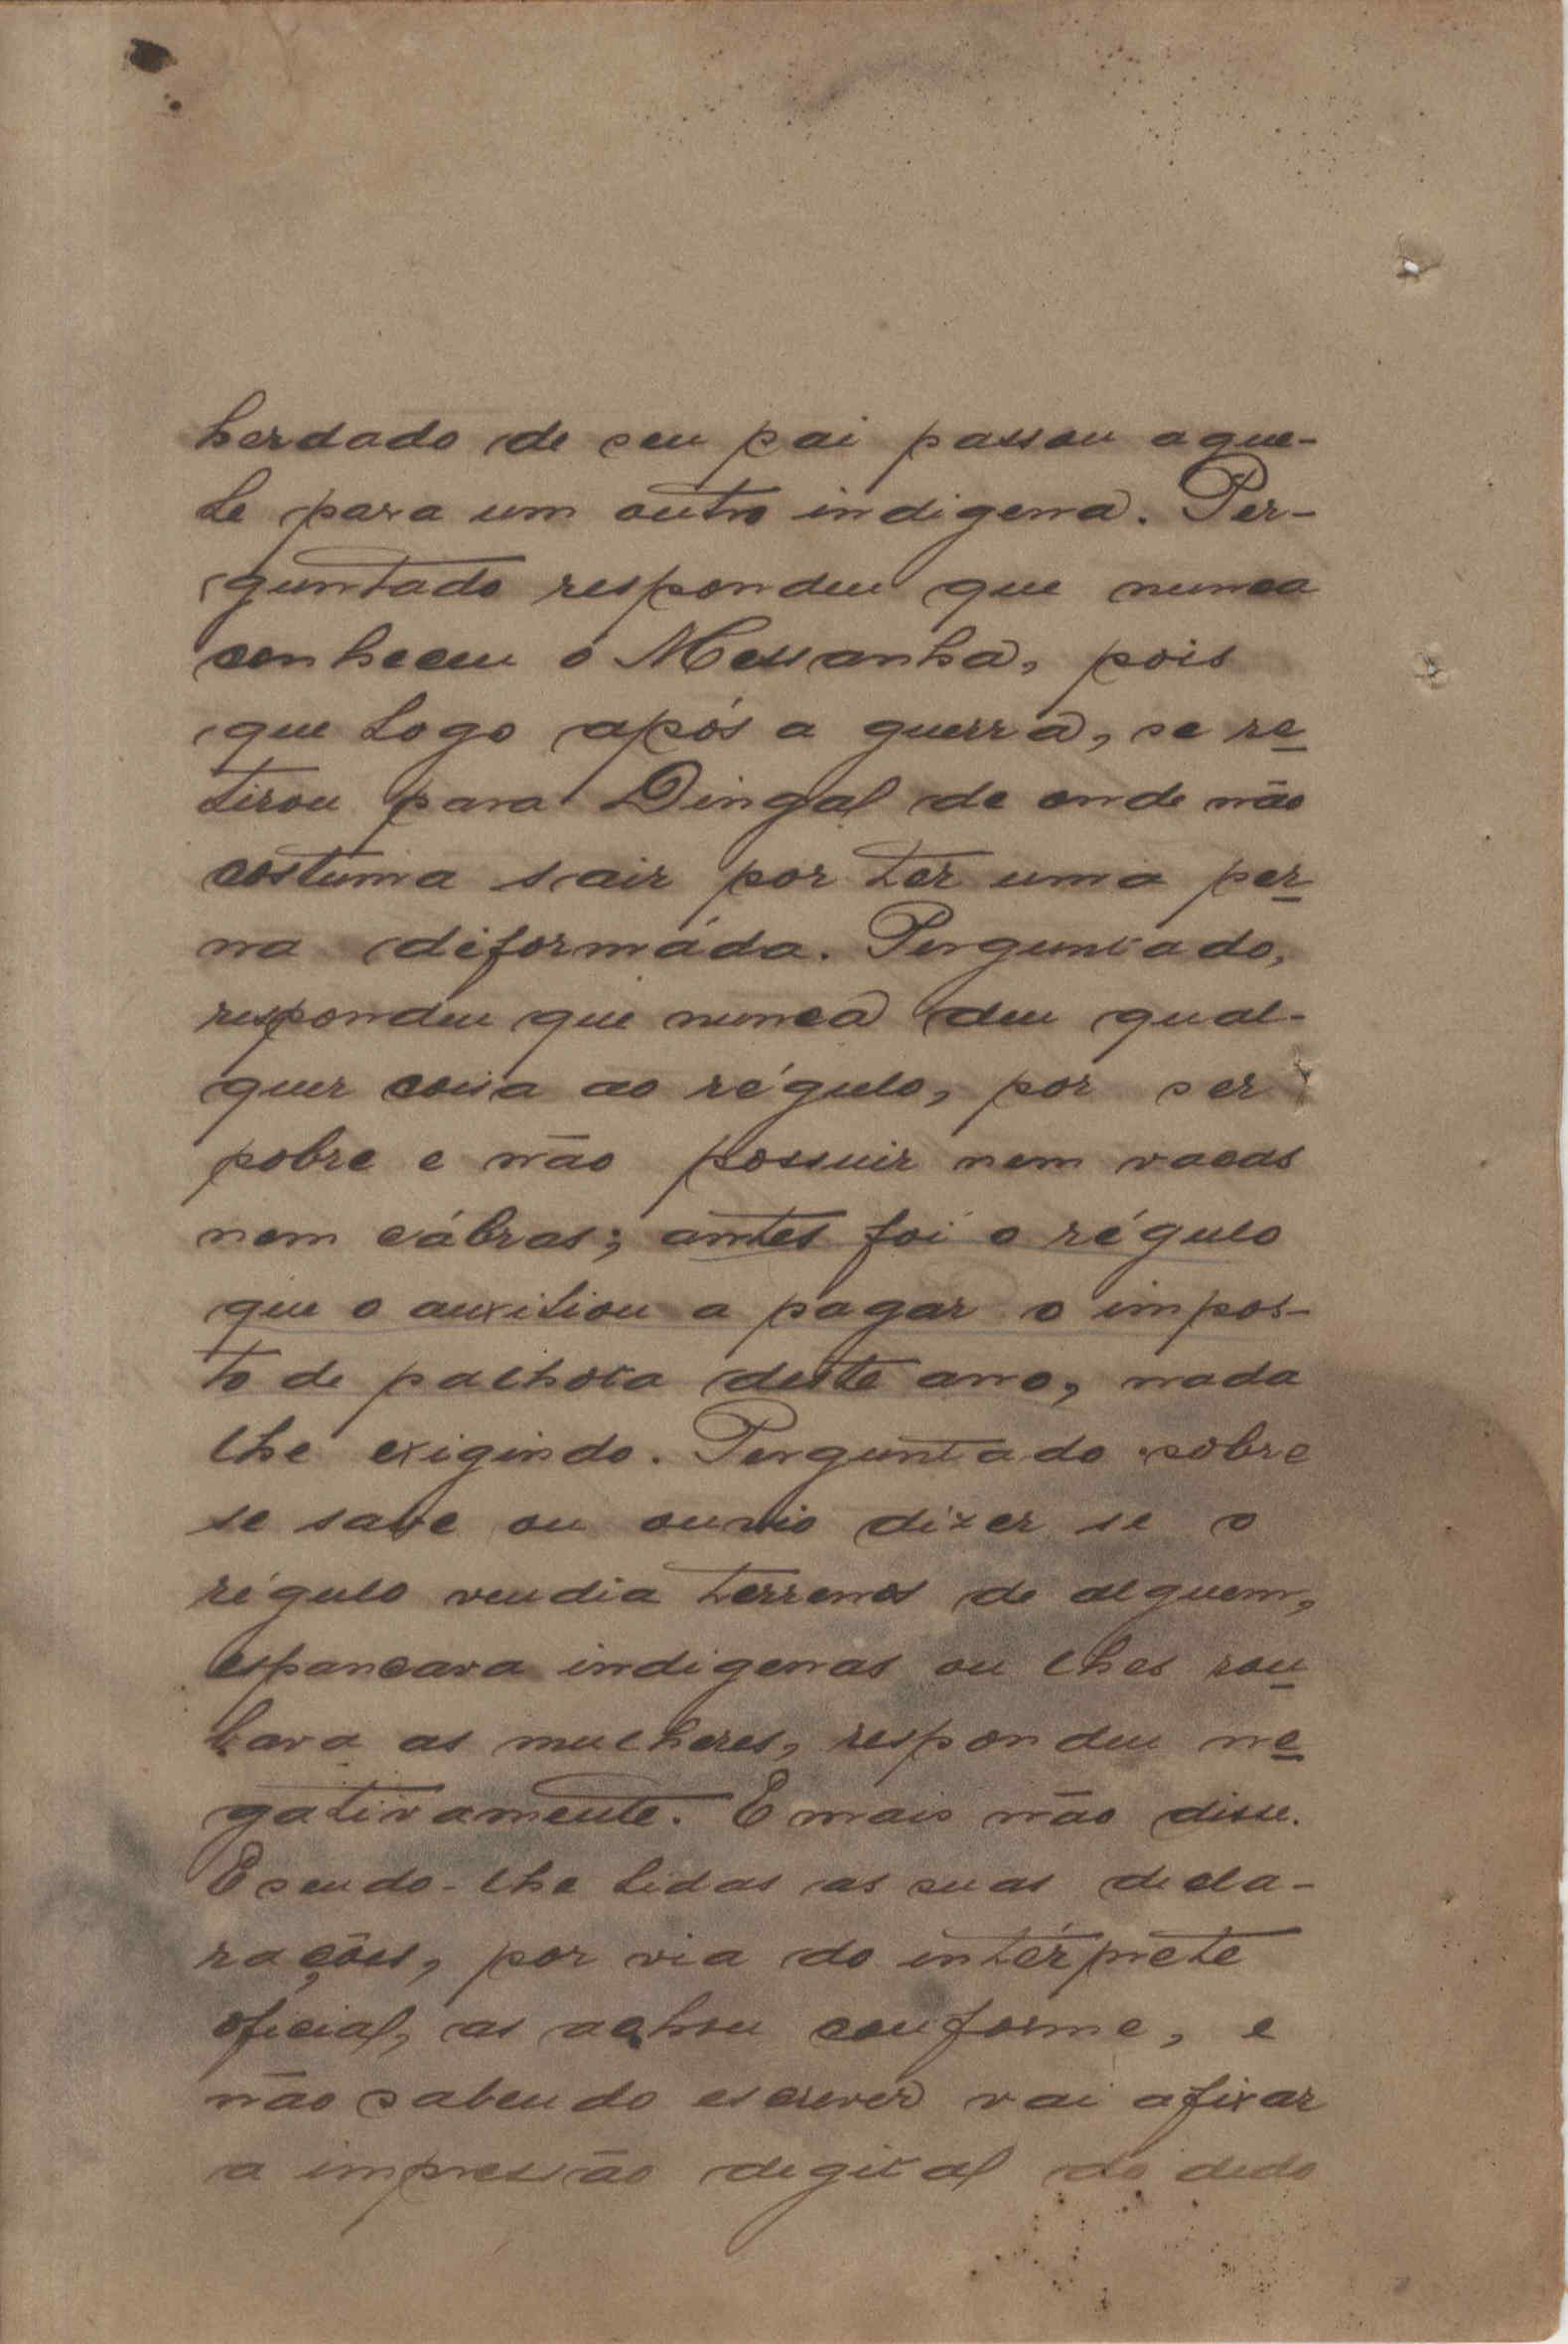 herdado de seu pai passou aque-
le para um outro indigena. Per-
guntado respondeu que nunca
conheceu o Messanha, pois
que logo após a guerra, se re
tirou para Dingal de onde não
costuma sair por ter uma per
na diformáda. Perguntado,
respondeu que nunca deu qual-
quer cousa ao régulo, por ser
pobre e não possuir nem vacas
nem cábras; antes foi o régulo
que o auxiliou a pagar o impos-
to de palhota deste ano, nada
lhe exigindo. Perguntado sobre
se sabe ou ouvio dizer se o
régulo vendia terrenos de alguem,
espancava indigenas ou lhes rou
bava as mulheres, respondeu ne
gativamente. E mais não disse.
E sendo-lhe lidas as suas decla-
rações, por via do intérprete
oficial, as achou conforme, e
não sabendo escrever vai afixar
a impressão degital do dedo